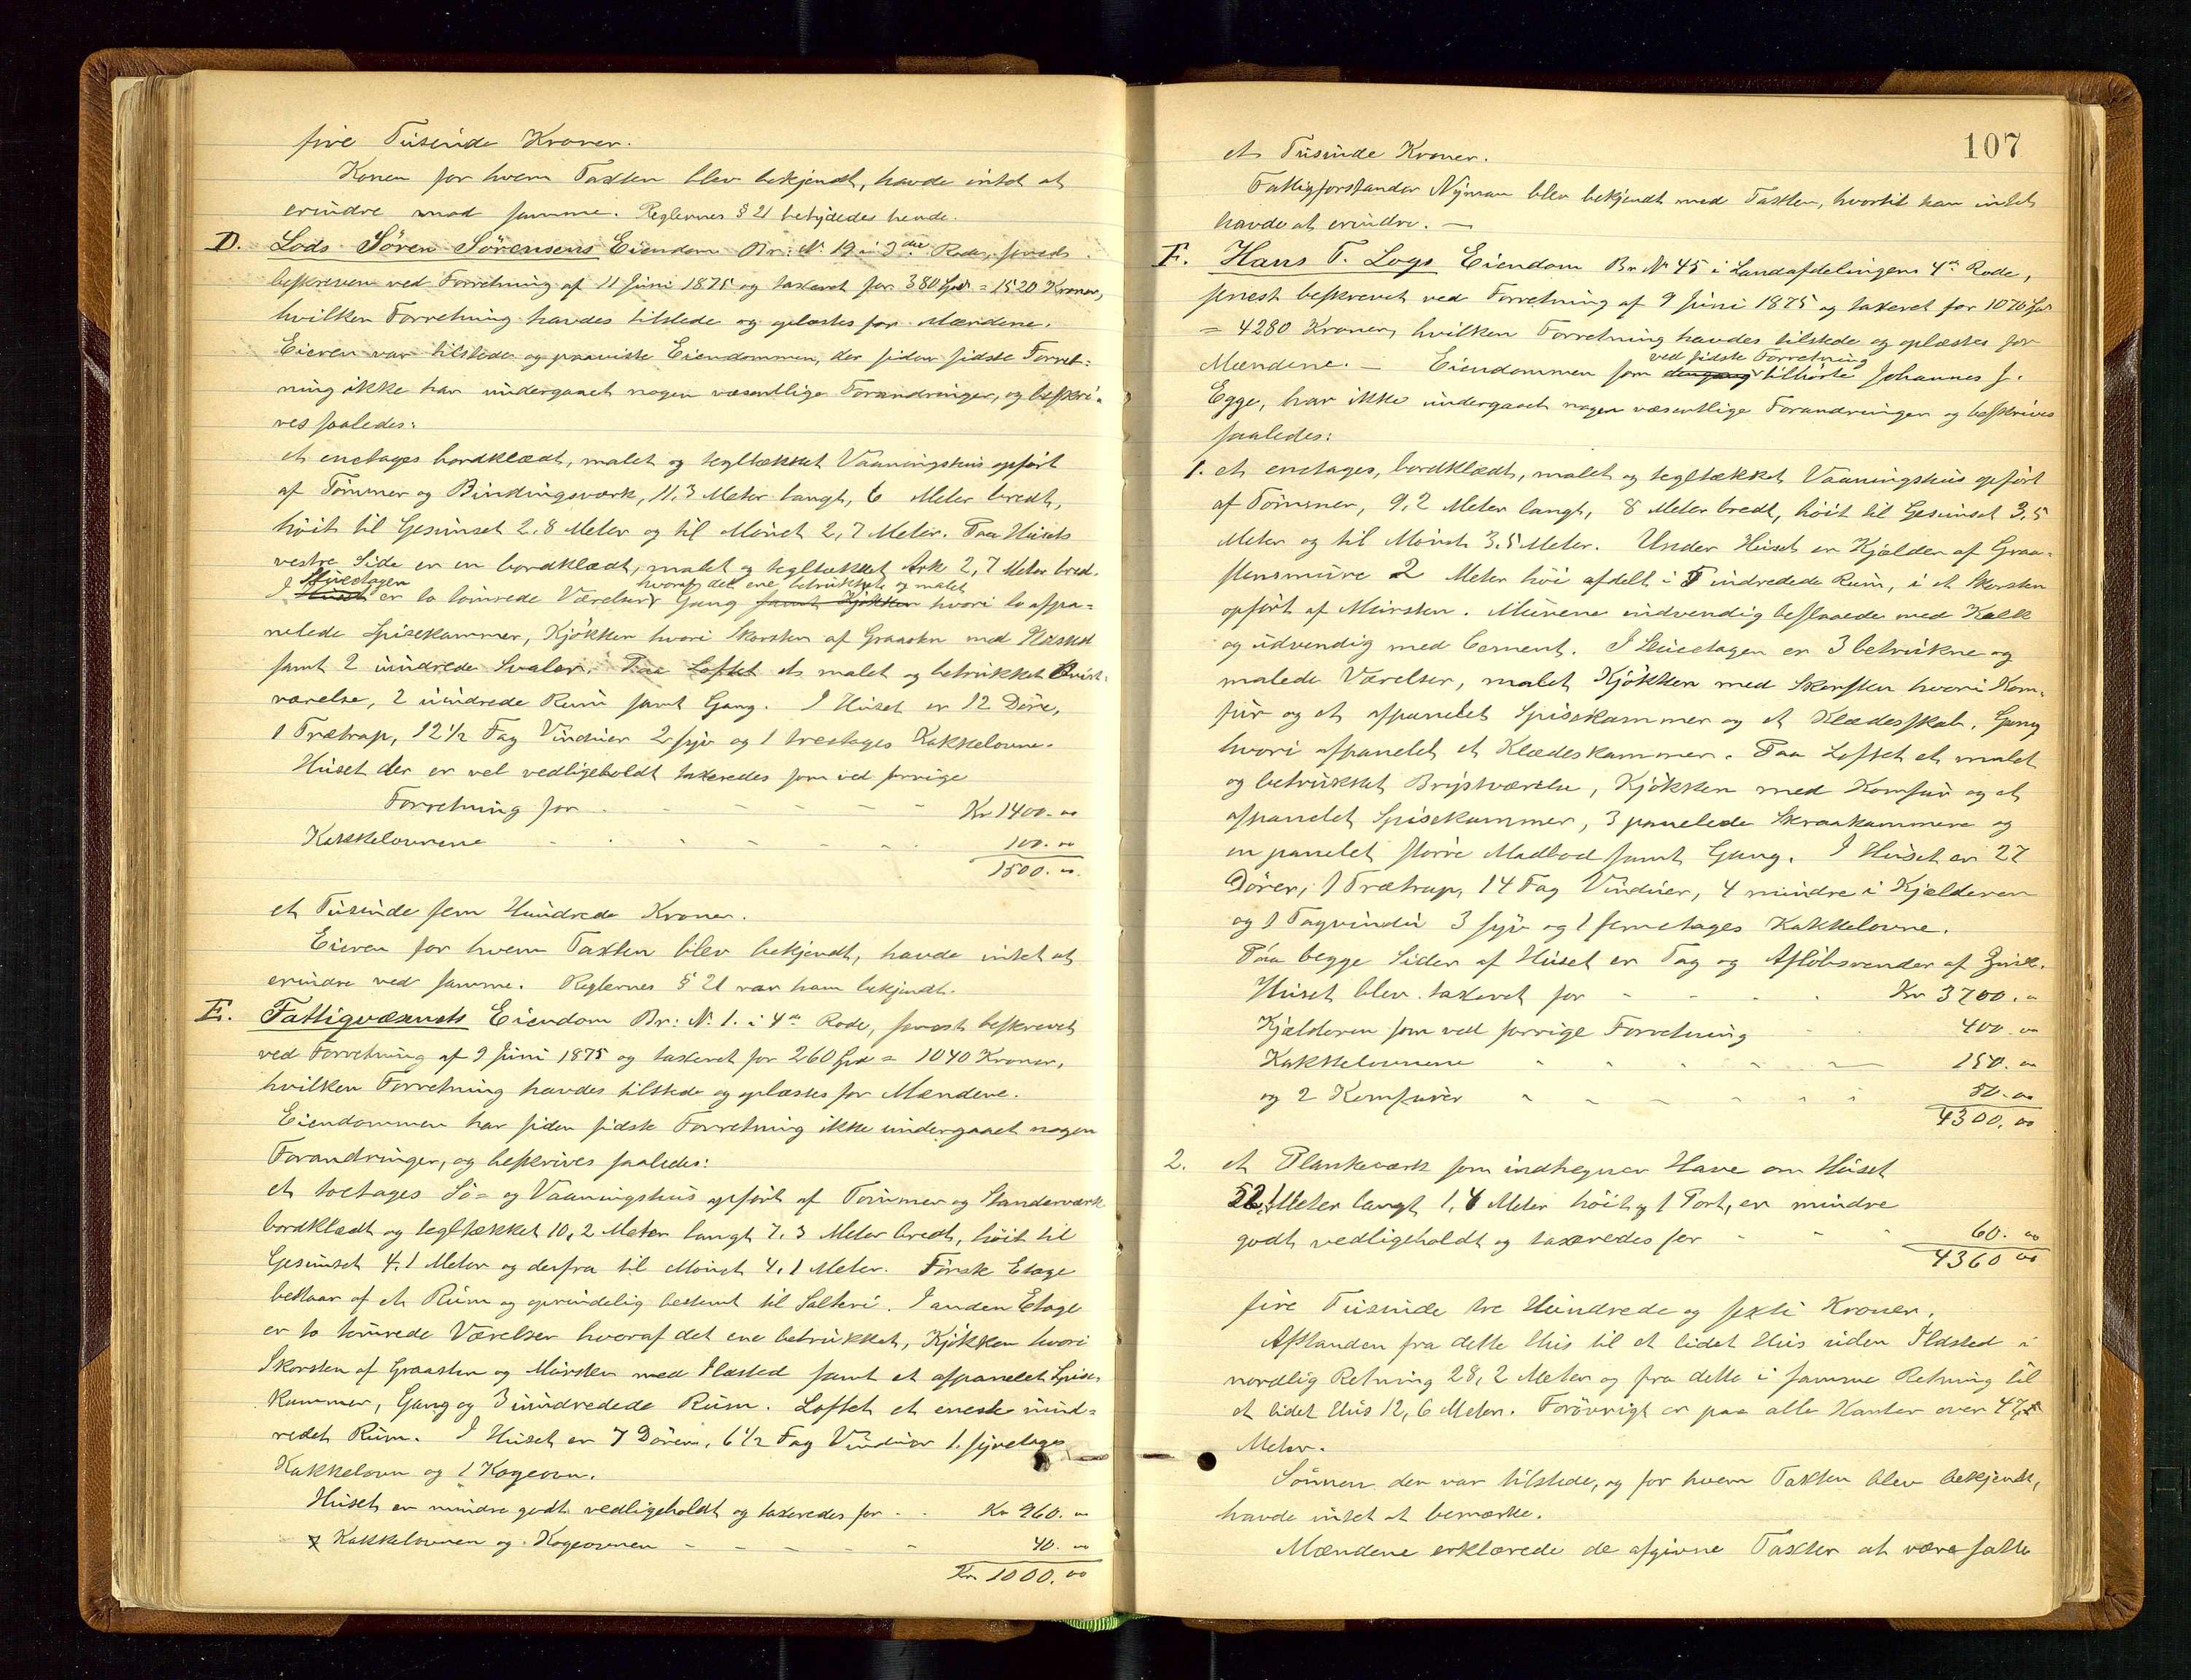 fire Tusinde Kroner.
Konen for hvem Taxten blev bekjendt, havde intet at
erindre mod samme. Reglernes § 21 betydedes hende.
D. Lods Sören Sörensens Eiendom Br: No 19 i 3die Rode, senest
beskreven ved Forretning af 11 Juni 1875 og taxeret for 380 Spd = 1520 Kroner,
hvilken Forretning havdes tilstede og oplæstes for Mændene.
Eieren var tilstede og paaviste Eiendommen, der siden sidste Forret=
ning ikke har undergaaet nogen væsentlige Forandringer, og beskri=
ves saaledes:
et enetages bordklædt, malet og tegltækket Vaaningshus opfört
af Tömmer og Bindingsværk, 11,3 Meter langt, 6 Meter bredt,
höit til Gesimset 2,8 Meter og til Mönet 2,7 Meter. Paa Husets
vestre Side er en bordklædt, malet og tegltækket Ark 2,7 Meter bred.
Stuetagen hvoraf det ene betrukket og malet
I Huset er to tömrede Værelser, Gang samt Kjökken hvori to afpa=
nelede Spisekammer, Kjökken hvori Skorsten af Graasten med Ildsted
samt 2 uindrede Svaler. Paa Loftet et malet og betrukket Kvist=
værelse, 2 uindrede Rum samt Gang. I Huset er 12 Döre,
1 Trætrap, 12 1/2 Fag Vinduer 2 syv og 1 treetages Kakkelovne.
Huset der er vel vedligeholdt taxeredes som ved forrige
Forretning for - - - - - Kr 1400.00
Kakkelovnene - - - - - - 100.00
1500.00
et Tusinde fem Hundrede Kroner.
Eieren for hvem Taxten blev bekjendt, havde intet at
erindre ved samme. Reglernes § 21 var ham bekjendt.
E. Fattigvæsenets Eiendom Br: No 1. i 4de Rode, senest beskrevet
ved Forretning af 9 Juni 1875 og taxeret for 260 Spd = 1040 Kroner,
hvilken Forretning havdes tilstede og oplæstes for Mændene.
Eiendommen har siden sidste Forretning ikke undergaaet nogen
Forandringer, og beskrives saaledes:
et toetages Sö= og Vaaningshus opfört af Tömmer og Standerværk
bordklædt og tegltækket 10,2 Meter langt 7,3 Meter bredt, höit til
Gesimset 4,1 Meter og derfra til Mönet 4,1 Meter. Förste Etage
bestaar af et Rum og oprindelig bestemt til Salteri. I anden Etage
er to tömrede Værelser hvoraf det ene betrukket, Kjökken hvori
Skorsten af Graasten og Mursten med Ildsted samt et afpanelet Spise-
kammer, Gang og 3 uindredede Rum. Loftet et eneste uind=
redet Rum. I Huset er 7 Dörer, 6 1/2 Fag Vinduer 1 syvetages
Kakkelovn og 1 Kogeovn.
Huset er mindre godt vedligeholdt og taxeredes for - - Kr 960.00
Kakkelovnen og Kogeovnen - - - - - 40.00
Kr. 1000.00
107
et Tusinde Kroner.
Fattigforstander Nyman blev bekjendt med Taxten, hvortil han intet
havde at erindre. —
F. Hans T. Logs Eiendom Br No 45 i Landafdelingens 4de Rode,
senest beskrevet ved Forretning af 9 Juni 1875 og taxeret for 1070 Spd
= 4280 Kroner, hvilken Forretning havdes tilstede og oplæstes for
ved sidste Forretning
Mændene. — Eiendommen som dengang tilhörte Johannes J.
Egge, har ikke undergaaet nogen væsentlige Forandringer og beskrives
saaledes:
1. et enetages, bordklædt, malet og tegltækket Vaaningshus opfört
af Tömmer, 9,2 Meter langt, 8 Meter bredt, höit til Gesimset 3,5
Meter og til Mönet 3,5 Meter. Under Huset er Kjelder af Graa=
stensmure 2 Meter höi afdelt i 5 indredede Rum, i et Skorsten
opfört af Mursten. Murene indvendig beslaaede med Kalk
og udvendig med Cement. I Stuetagen er 3 betrukne og
malede Værelser, malet Kjökken med Skorsten hvori Kom=
fur og et afpanelet Spisekammer og et Klædesskab, Gang
hvori afpanelet et Klædeskammer. Paa Loftet et malet
og betrukket Brystværelse, Kjökken med Komfur og et
afpanelet Spisekammer, 3 panelede Skraakammere og
en panelet större Madbod samt Gang. I Huset er 27
Dörer, 1 Trætrap, 14 Fag Vinduer, 4 mindre i Kjælderen
og 1 Tagvindu 3 syv og 1 femetages Kakkelovne.
Paa begge Sider af Huset er Tag og Aflöbsrender af Zink.
Huset blev taxeret for - - - - Kr 3700.00
Kjælderen som ved forrige Forretning - - 400.00
Kakkelovnene - - - - - 150.00
og 2 Komfurer - - - - - 50.00
4300.00
2. et Plankeværk som indhegner Have om Huset
52,1 Meter langt 1,4 Meter höit og 1 Port, er mindre
godt vedligeholdt og taxeredes for - - - 60.00
4360.00
fire Tusinde tre Hundrede og sexti Kroner.
Afstanden fra dette Hus til et lidet Hus uden Ildsted i
nordlig Retning 28,2 Meter og fra dette i samme Retning til
et lidet Hus 12,6 Meter. Forövrigt er paa alle Kanter over 47
Meter.
Sönnen der var tilstede, og for hvem Taxten blev bekjendt,
havde intet at bemærke.
Mændene erklærede de afgivne Taxter at være satte